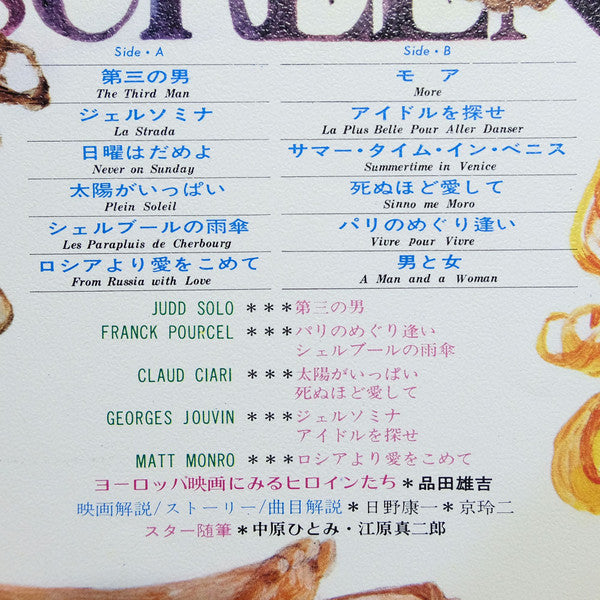 SCREEN
Side・A
第三の男
The Third Man
ジェルソミナ
La Strada
日曜はだめよ
Never on Sunday
太陽がいっぱい
Plein Soleil
シェルブールの雨傘
Les Parapluis de Cherbourg
ロシアより愛をこめて
From Russia with Love
Side・B
モア
More
アイドルを探せ
La Plus Belle Pour Aller Danser
サマー・タイム・イン・ベニス
Summertime in Venice
死ぬほど愛して
Sinno me Moro
パリのめぐり逢い
Vivre pour Vivre
男と女
A Man and a Woman
JUDD SOLO ***第三の男
FRANCK POURCEL ***パリのめぐり逢い
シェルブールの雨傘
CLAUD CIARI ***太陽がいっぱい
死ぬほど愛して
GEORGES JOUVIN ***ジェルソミナ
アイドルを探せ
MATT MONRO ***ロシアより愛をこめて
ヨーロッパ映画にみるヒロインたち*品田雄吉
映画解説/ストーリー/曲目解説*日野康一*京玲二
スター随筆*中原ひとみ・江原真二郎